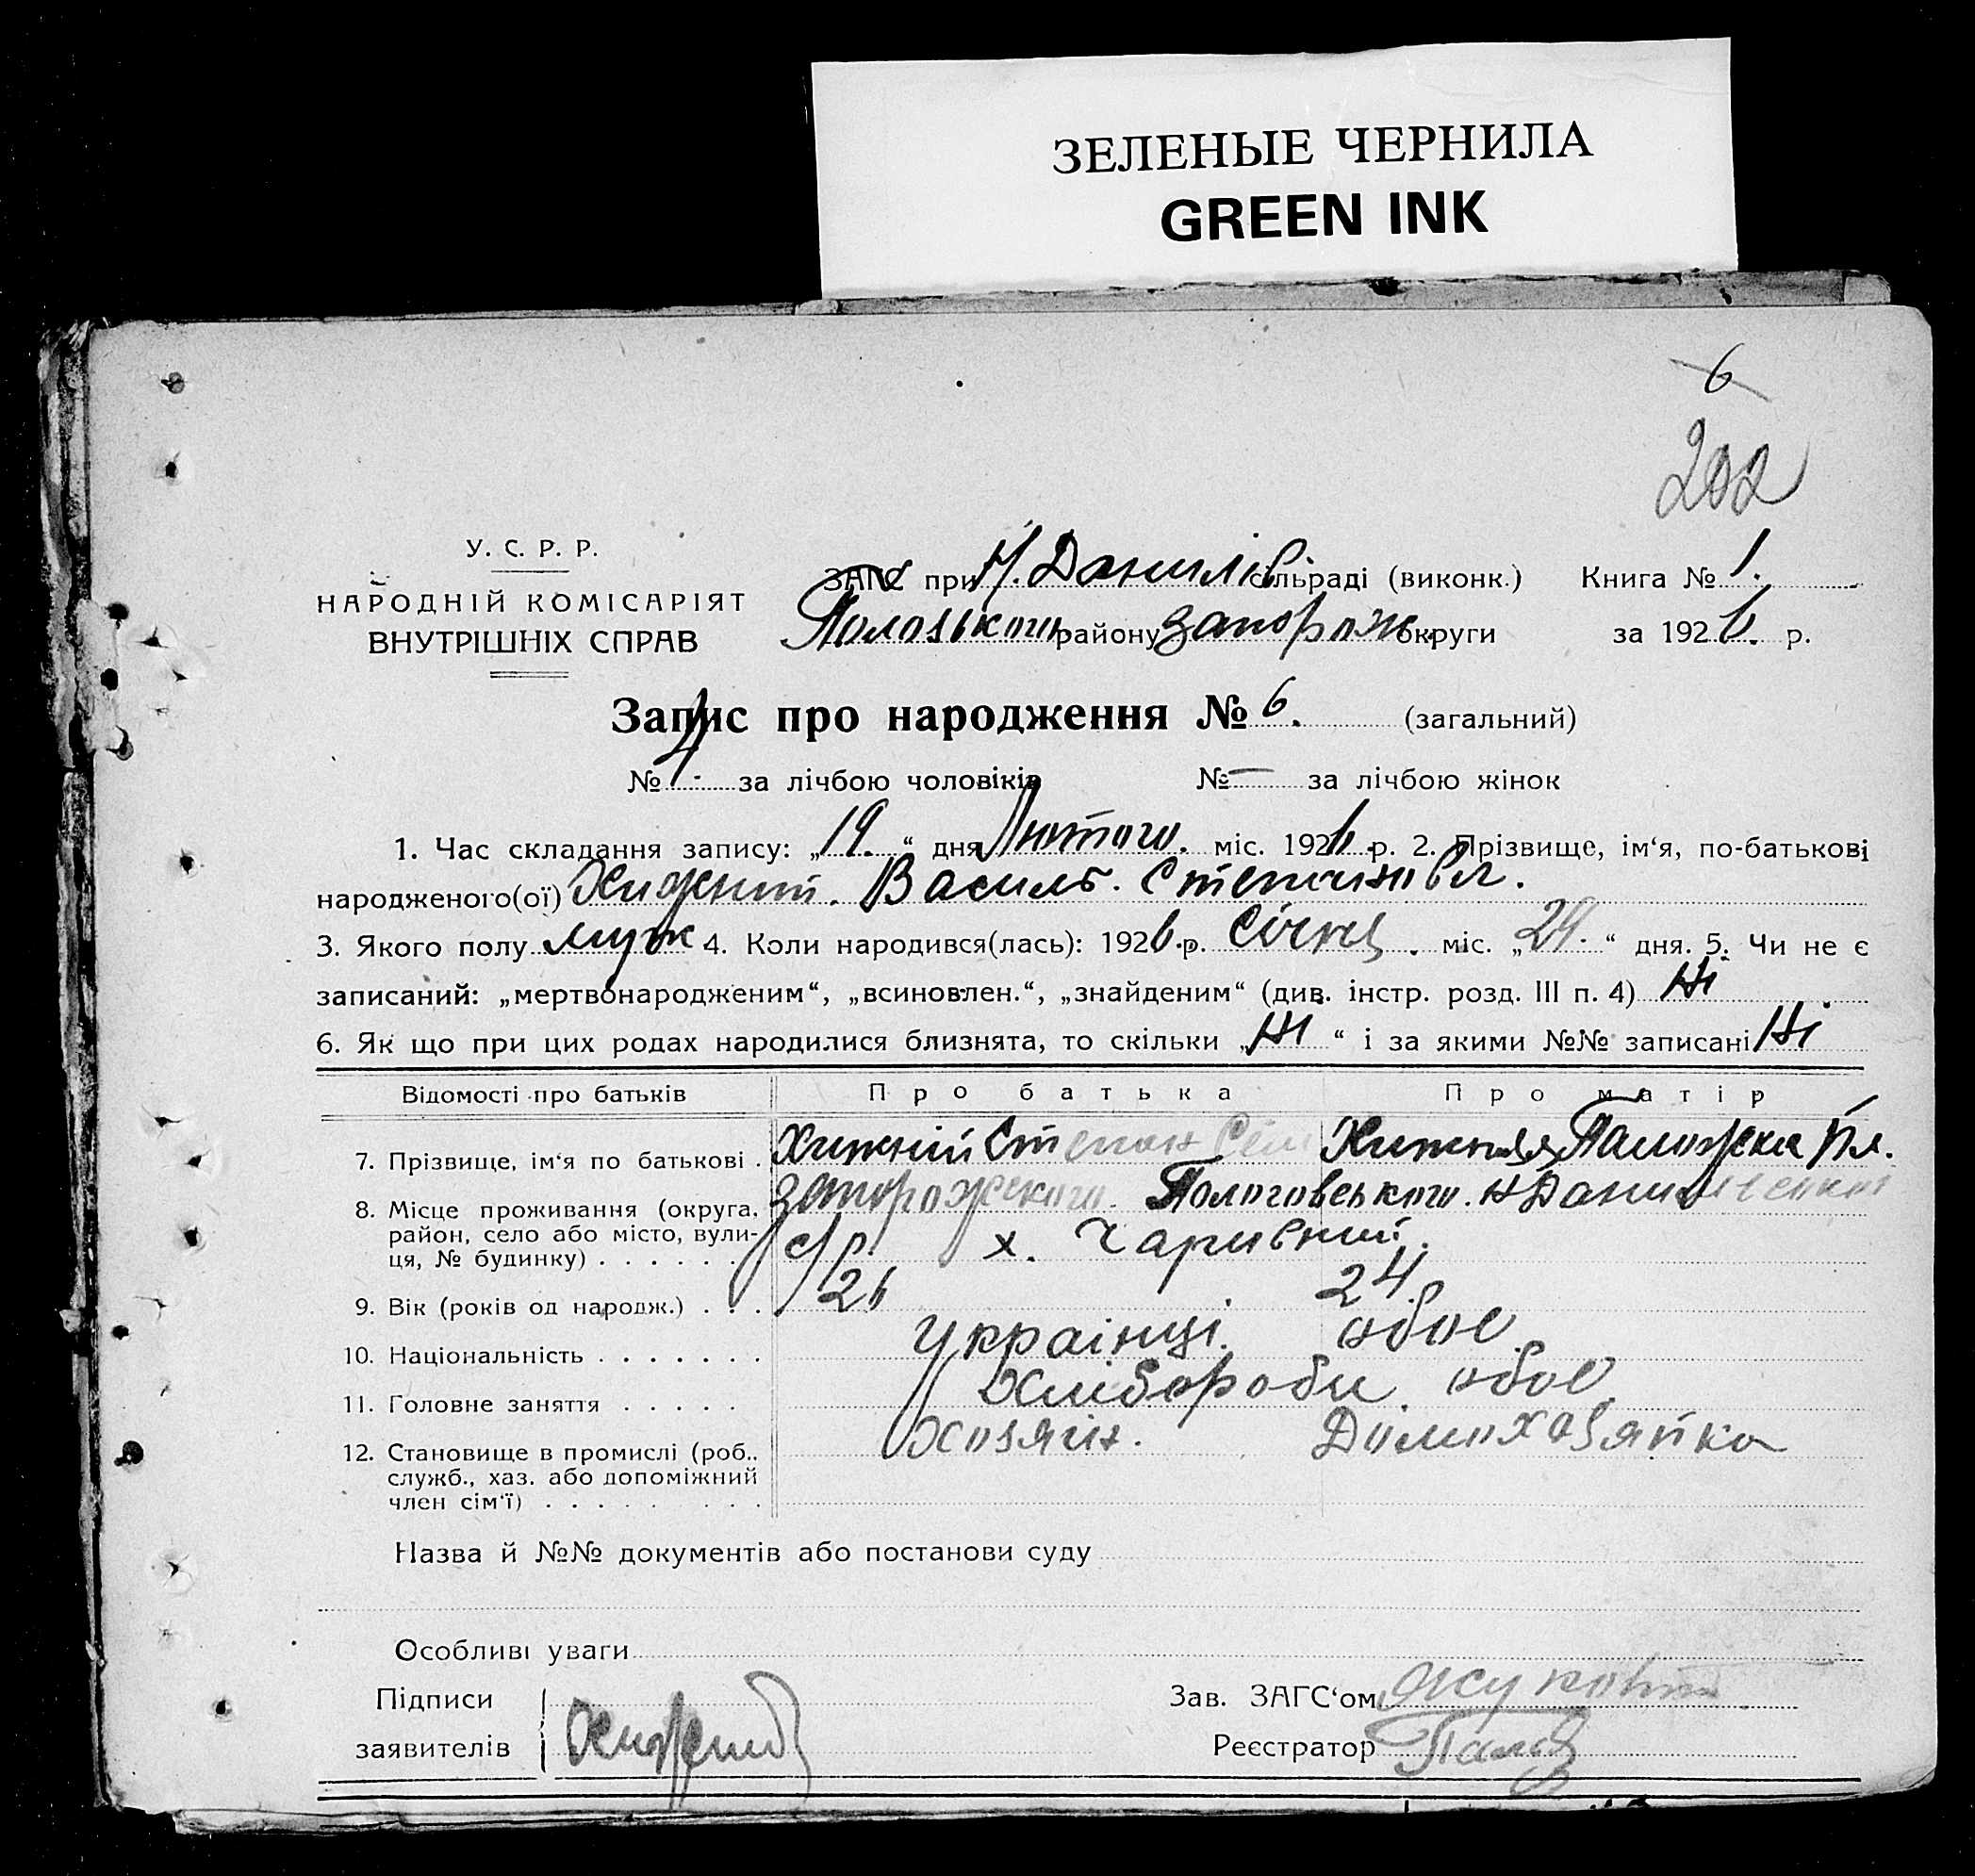 ЗЕЛЕНЫЕ ЧЕРНИЛА
GREEN INK
6
202
У. С. Р. Р.
НАРОДНІЙ КОМІСАРІЯТ
ВНУТРІШНІХ СПРАВ
ЗАГС при Н. Данилів сільраді (виконк.) Книга № 1.
району Запорож. округи за 1926. р.
Запис про народження № 6. (загальний)
№ 4. за лічбою чоловіків № — за лічбою жінок
1. Час складання запису: „19.“ дня Лютого. міс. 1926 р. 2. Прізвище, ім‘я, по-батькові
народженого(ої) Хижний. Василь. Степанов
3. Якого полу муж 4. Коли народився(лась): 1926.р. Січня. міс. „29.“ дня. 5. Чи не є
записаний: „мертвонародженим“, „всиновлен.“, „знайденим“ (див. інстр. розд. III п. 4) Ні
6. Як що при цих родах народилися близнята, то скільки „Ні“ і за якими №№ записані Ні
Відомості про батьків Про батька Про матір
7. Прізвище, ім‘я по батькові . Хижний Степан Сем Хижняя
8. Місце проживання (округа, Запорожского. Пологовського. Н Данилівської
район, село або місто, вули- с/р. х. Чаривний.
ця, № будинку) . . . . . .
9. Вік (років од народж.) . . . 26 24.
10. Національність . . . . . . . Українці. обоє.
11. Головне заняття . . . . . Хлібороби. обоє.
12. Становище в промислі (роб., Хозяін. Домохазяйка
служб., хаз. або допоміжний
член сім‘ї) . . . . . . . . .
Назва й №№ документів або постанови суду
Особливі уваги
Підписи Зав. ЗАГС‘ом
заявителів Хижний Реєстратор